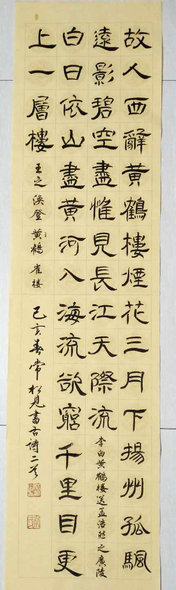 故人西辭黃鶴樓煙花三月下揚州孤颿
遠影碧空盡惟見長江天際流 李白黃鶴樓送孟浩然之廣陵
白日依山盡黃河入海流欲窮千里目更
上一層樓 王之渙登黃鶴雀樓 己亥春常松見書古詩二首